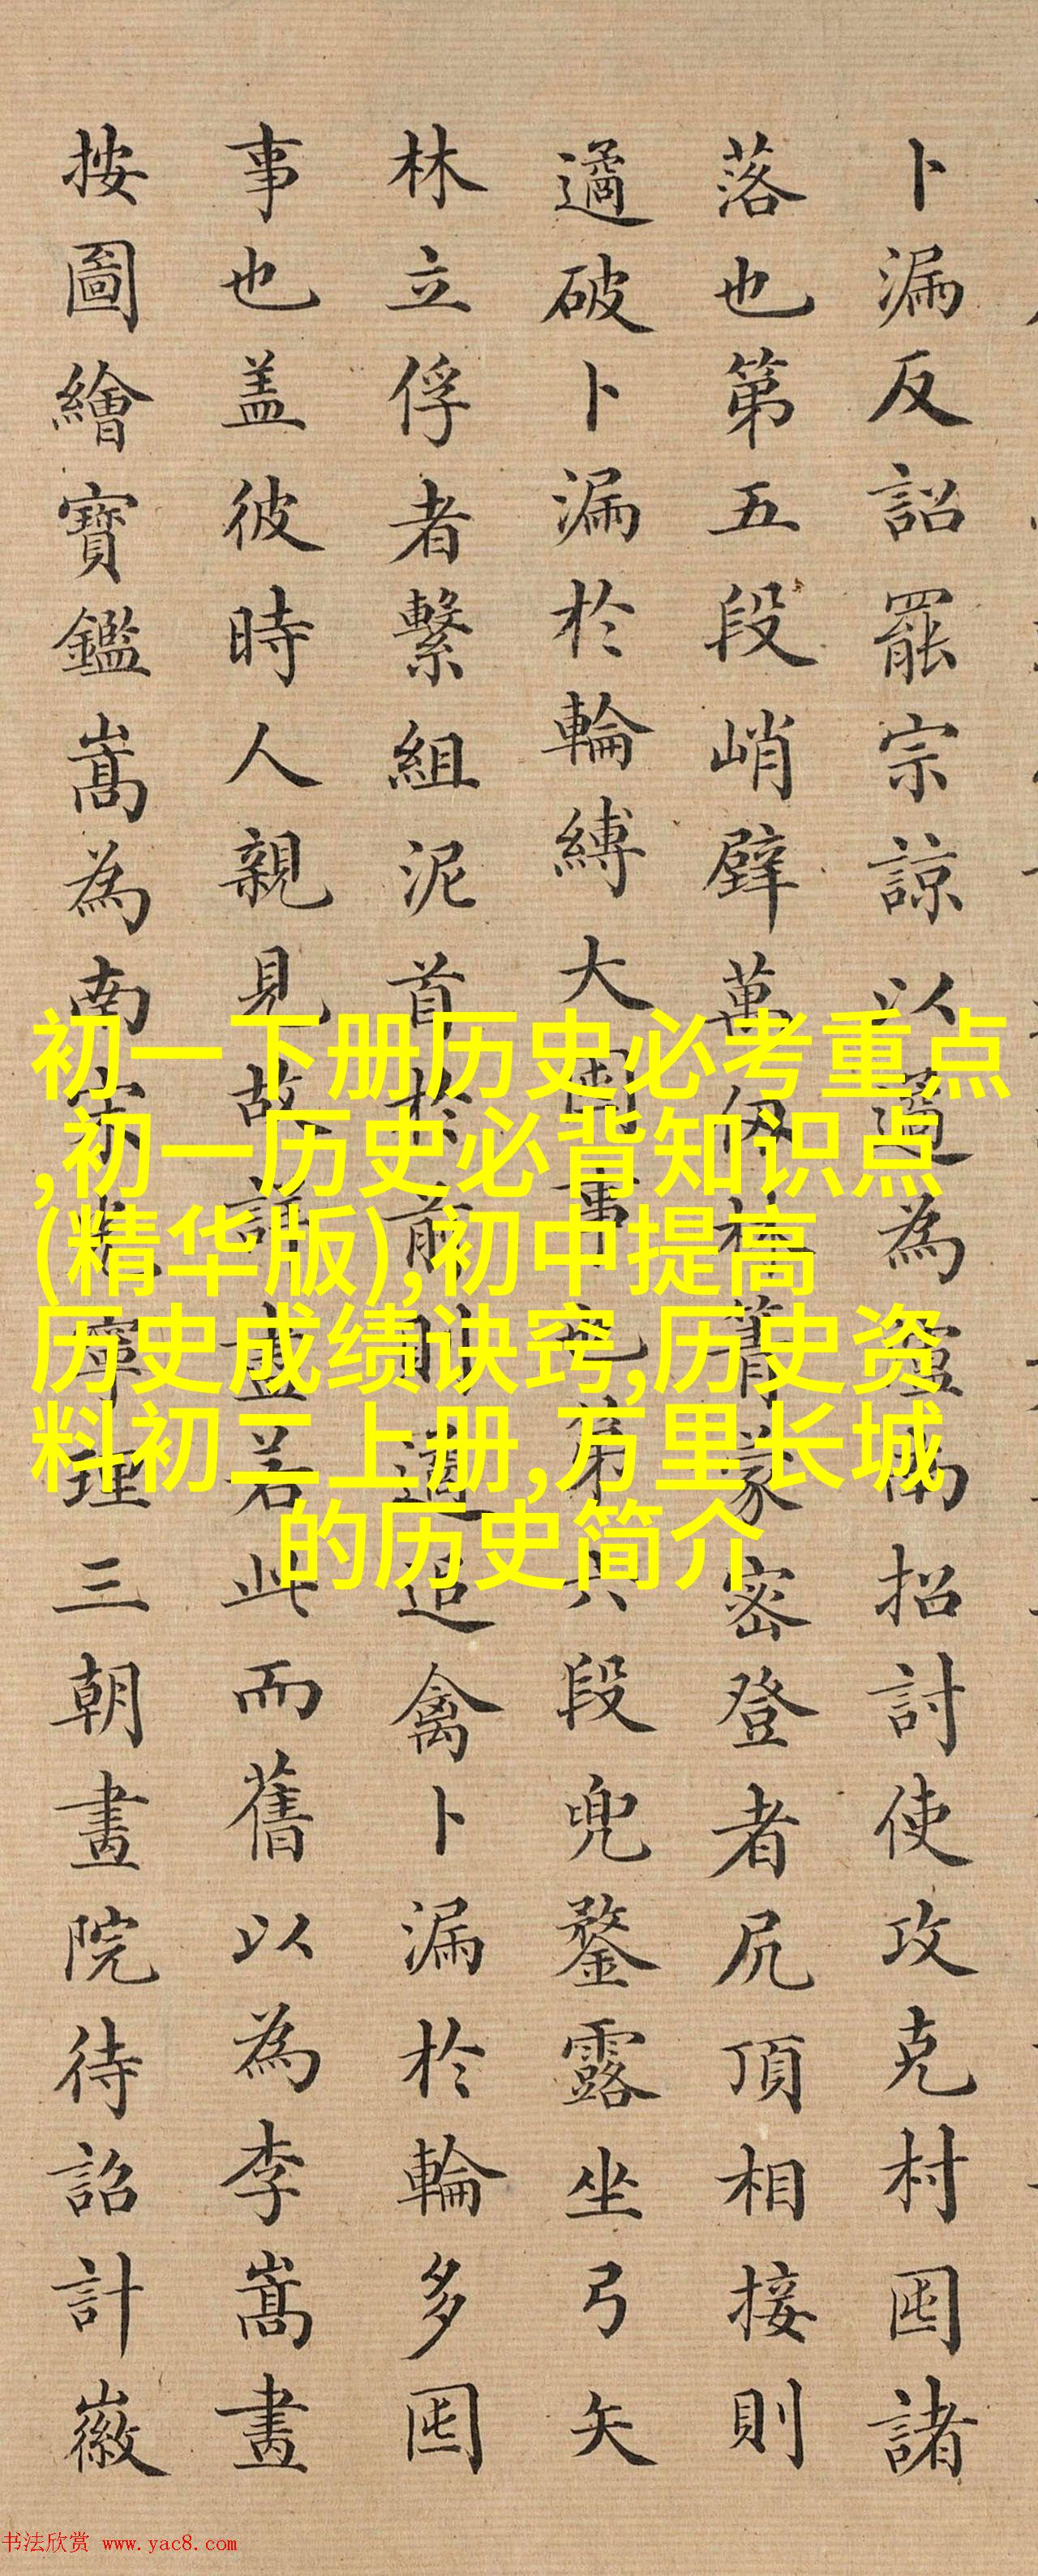 卜漏反詔罷宗諒以遹為瀘南招討使攻克村囤諸
落也第五段峭壁萬仞林箐蒙密登者尻頂相接則
遹破卜漏於輪縛大囤事也第六段兜鍪露坐弓矢
林立俘者繫組泥首於前則遹追禽卜漏於輪多囤
事也盖彼時人親見故詳盡若此而舊以為李嵩畫
按圖繪寶鑑嵩為南宋光寧理三朝畫院待詔計徽
初一下册历史必考重点
,初一历史必背知识点
(精华版),初中提高
历史成绩诀窍,历史资
料初二上册,万里长城
的历史简介
书法欣赏 www.yac8.com